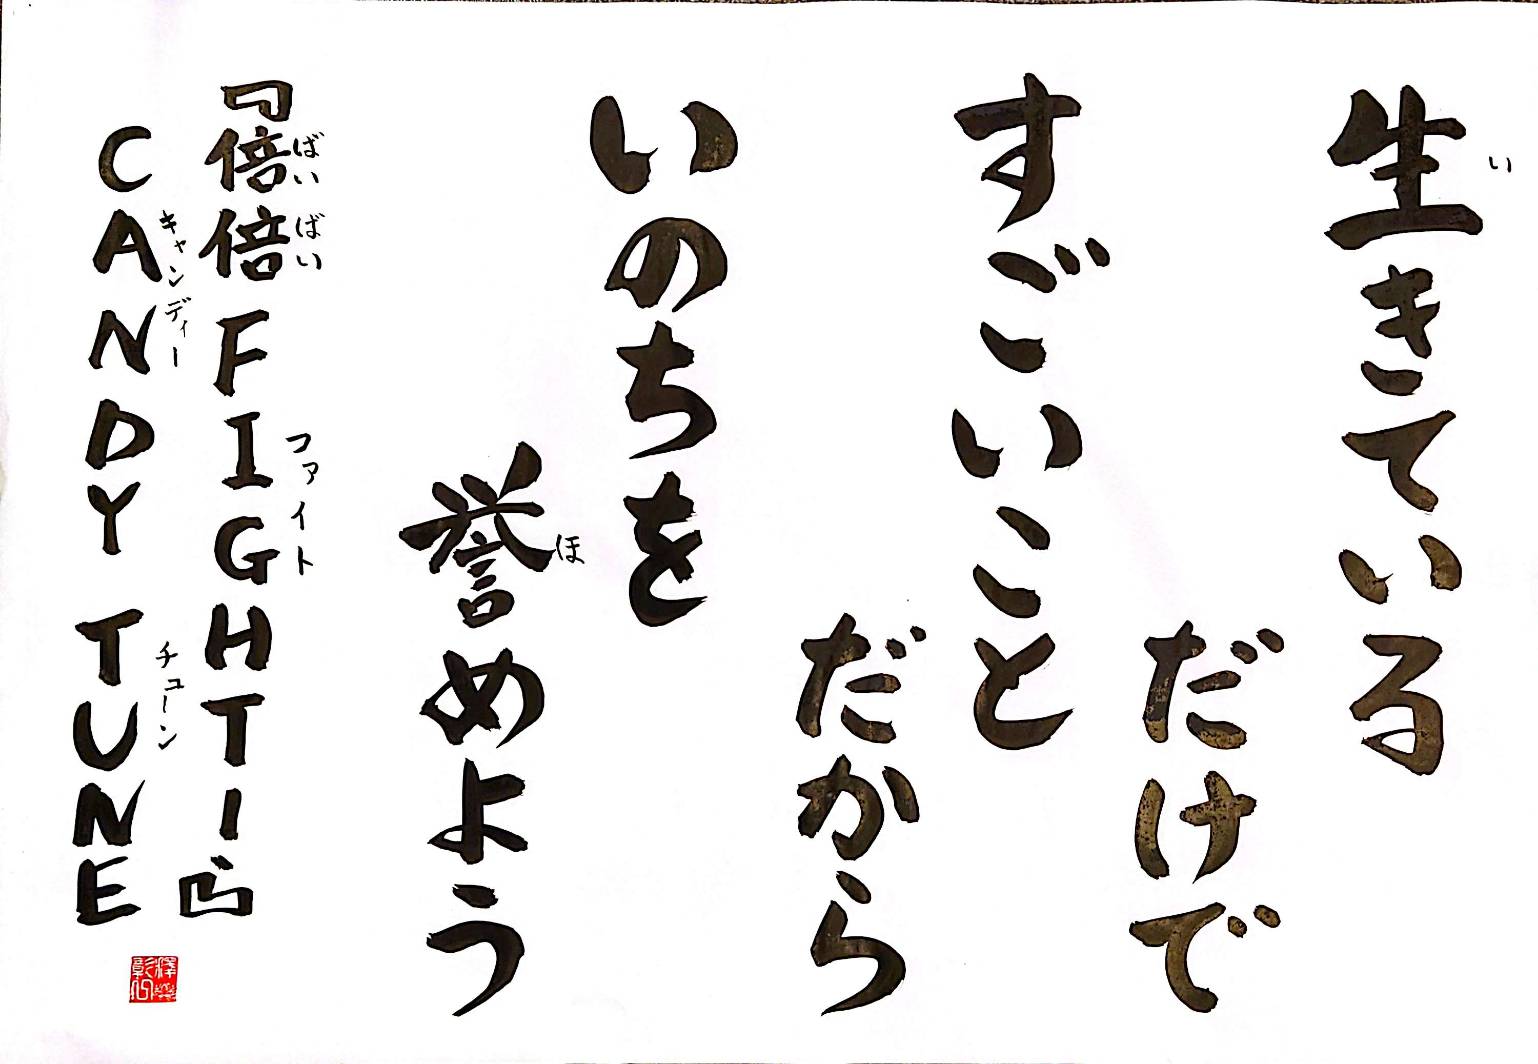 生きている
だけで
すごいこと
だから
いのちを
誉めよう
『倍倍FIGHT!』
CANDY TUNE
い
ほ
ばい ばい
ファイト
キャンディー
チューン